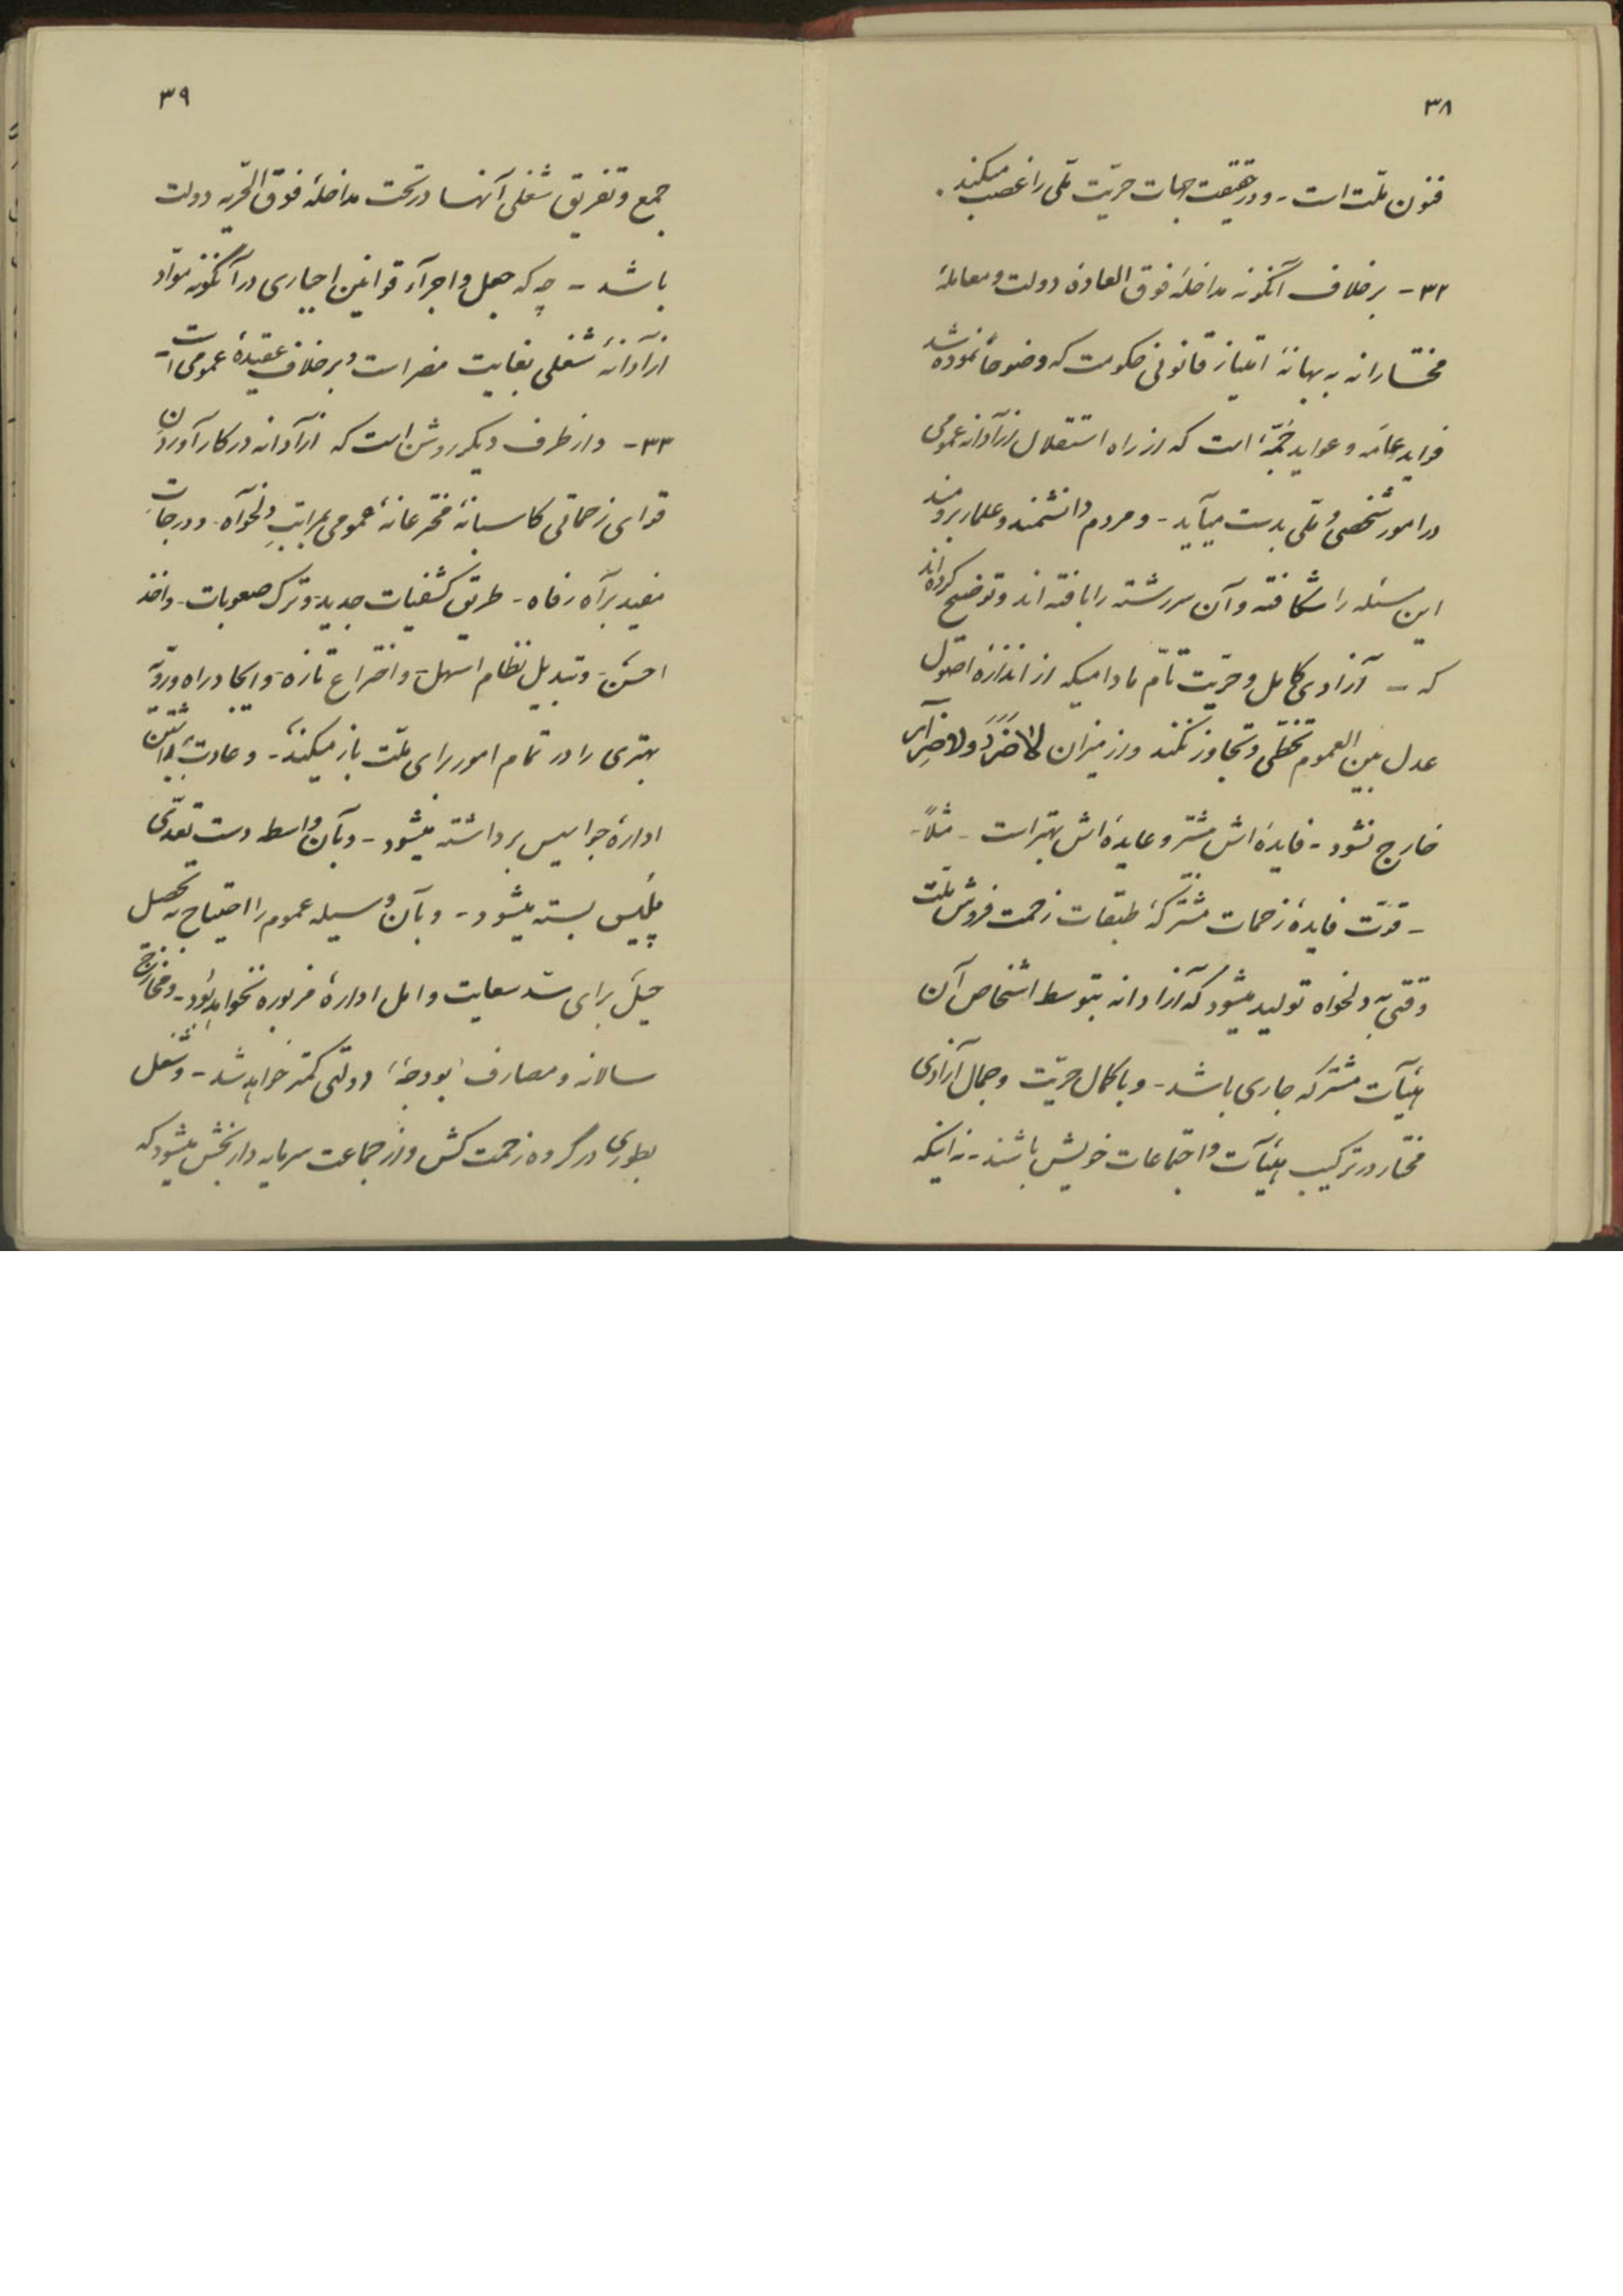 ۳۸
فنون ملّت است - و در حقیقت جهات حرّیت ملّی را غصب میکنند.
۳۲ - برخلاف آنگونه مداخلهٔ فوق العادهٔ دولت و معاملهٔ
مختارانه به بهانهٔ امتیاز قانونی حکومت که وضوحاً نموده شد
فواید عامّه و عواید جمّهٔ است که از راه استقلال آزادانه عمومی
در امور شخصی و ملّی بدست میآید - و مردم دانشمند و علمار برومند
این مسئله را شکافته و آن سررشته را بافته اند و توضیح کرده اند
که - آزادی کامل و حرّیت تامّ مادامیکه از اندازهٔ اصول
عدل بین العموم تخطّی و تجاوز نکند و از میزان لا ضَرَرَ و لا ضِرار
خارج نشود - فایده اش مثمر و عایده اش بهتر است - مثلاً -
- قوّت فایدهٔ زحمات مشترکهٔ طبقات زحمت فروش ملّت
وقتی به دلخواه تولید میشود که آزادانه بتوسط اشخاص آن
هیئآت مشترکه جاری باشد - و با کمال حرّیت و جمال آزادی
مختار در ترکیب هیئآت و اجتماعات خویش باشند - نه اینکه
۳۹
جمع و تفریق شغلی آنها در تحت مداخلهٔ فوق الحرّیه دولت
باشد - چه که جعل و اجرآء قوانین اجباری در آنگونه موّاد
آزادانهٔ شغلی بغایت مضر است و برخلاف عقیدهٔ عمومی است -
۳۳ - و از طرف دیگر روشن است که آزادانه در کار آوردن
قوای زحماتی کاسبانهٔ مخترعانهٔ عمومی بمراتبِ دلخواه . و درجات
مفید برآه رفاه - طریق کشفیات جدید - و ترک صعوبات - و اخذ
احسَن - و تبدیل نظام اسهل - و اختراع تازه - و ایجاد راه و رویّهٔ
بهتری را در تمام امور برای ملّت باز میکند - و عادت
ادارهٔ جواسیس برداشته میشود - و بآن واسطه دست تعدّی
پلیس بسته میشود - و بآن وسیله عموم را احتیاج به تحصل
حیَل برای سدّ سعایت و امل ادارهٔ مزبوره نخواهد بود - و مخارج
سالانه و مصارف 'بودجهٔ' دولتی کمتر خواهد شد - و شغل
بطوری در گروه زحمت کش و از جماعت سرمایه دار بخش میشود که